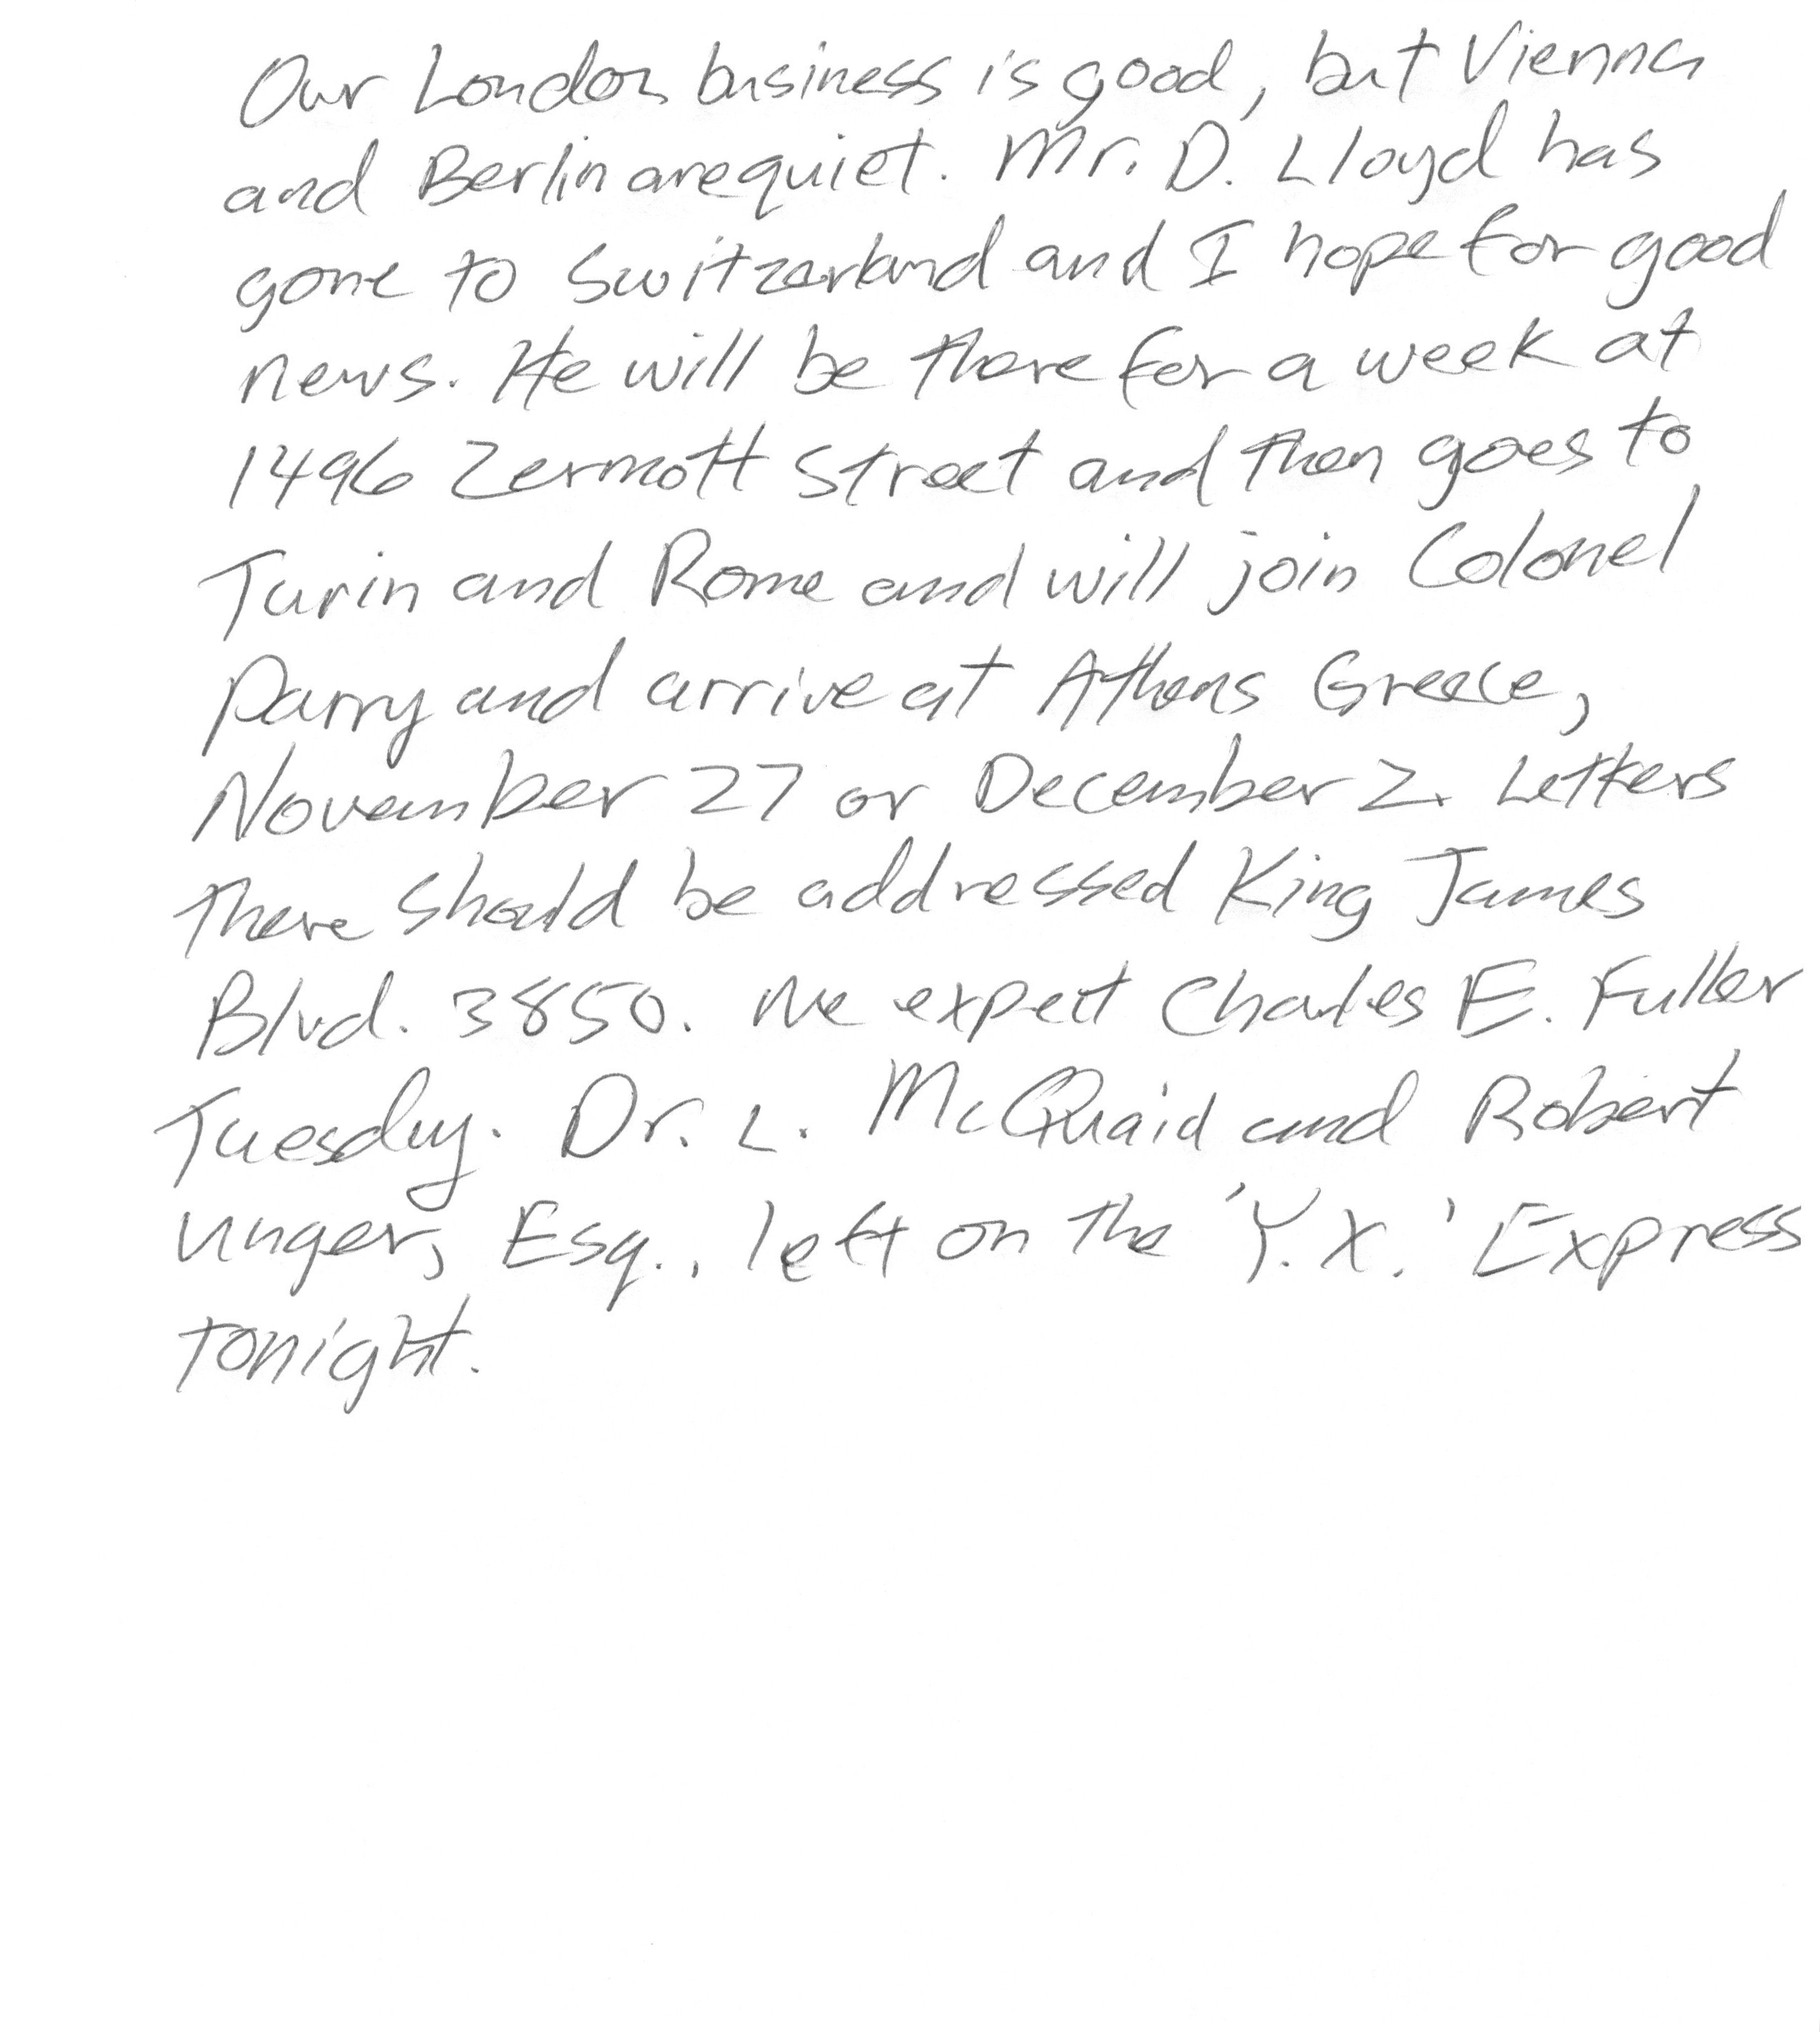 Our London business is good, but Vienna
and Berlin are quiet. Mr. D. Lloyd has
gone to Switzerland and I hope for good
news. He will be there for a week at
1496 Zermott Street and then goes to
Turin and Rome and will join Colonel
Parry and arrive at Athens Greece,
November 27 or December 2. Letters
there should be addressed King James
Blvd. 3850. We expect Charles E. Fuller
Tuesday. Dr. L. McQuaid and Robert
Unger, Esq., left on the 'Y.X.' Express
tonight.